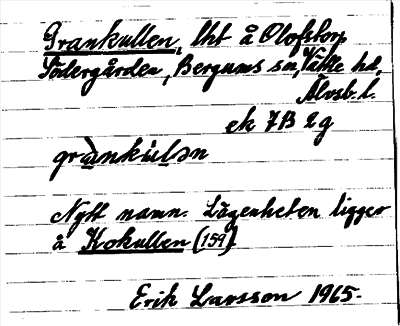 Grankullen, lht å Olofstorp
Södergården, Bergums sn, Vättle hd,
Älvsb. l.
ek 7B 2g
grànkúlən
Nytt namn. Lägenheten ligger
å Kokullen (159)
Erik Larsson 1965.